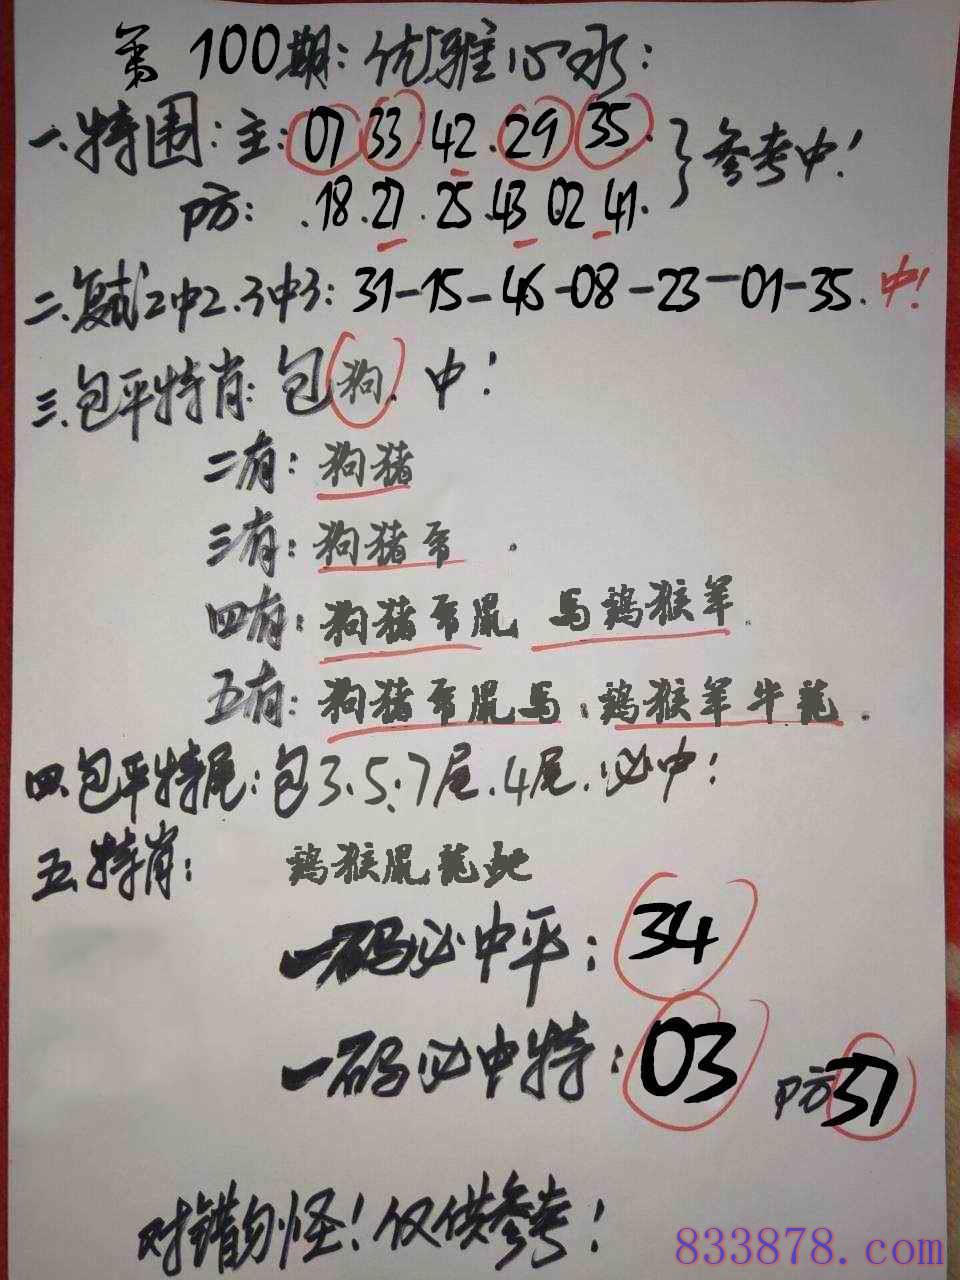 第100期：优雅心水：
一、特围：主：07 33 42. 29 35. 参考中！
防：.18.27.25.43 02 41.
二、复式2中2.3中3：31-15-46-08-23-01-35. 中！
三、包平特肖：包狗. 中！
二有：狗猪
三有：狗猪兎.
四有：狗猪兎鼠 马鷄猴羊.
五有：狗猪兎鼠马.鷄猴羊牛龍.
四.包平特尾：包3、5：7尾.4尾.必中！
五、特肖： 鷄猴鼠龍蛇
一码必中平：34
一码必中特：03 防37
对错勿怪！仅供参考！
833878.com